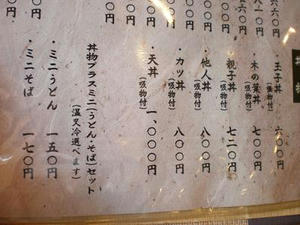 玉子丼
(吸物付)
六〇〇円
・木の葉丼
(吸物付)
七〇〇円
親子丼
(吸物付)
七二〇円
・他人丼
(吸物付)
八〇〇円
・カツ丼
(吸物付)
八〇〇円
・天丼
(吸物付)
一、〇〇〇円
丼物プラスミニ(うどん・そば)セット
(温又冷選べます)
・ミニうどん 一五〇円
・ミニそば 一七〇円